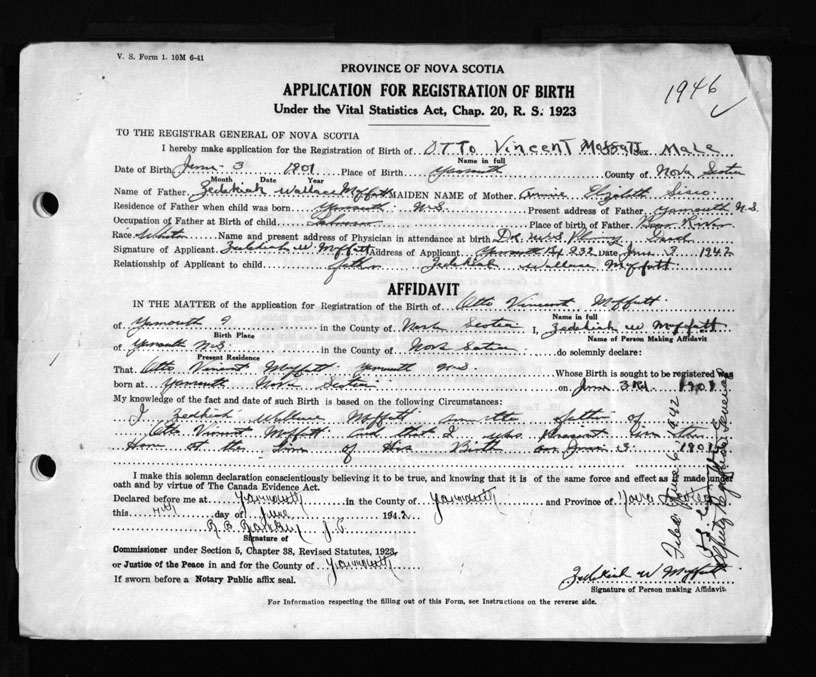 V. S. Form 1. 10M 6-41
1946 ✓
PROVINCE OF NOVA SCOTIA
APPLICATION FOR REGISTRATION OF BIRTH
Under the Vital Statistics Act, Chap. 20, R. S. 1923
TO THE REGISTRAR GENERAL OF NOVA SCOTIA
I hereby make application for the Registration of Birth of OTTO Vincent Moffatt Sex Male
Name in full
Date of Birth June 3 1901 Place of Birth Yarmouth County of Nova Scotia
Month Date Year
Name of Father Zedekiah Wallace Moffatt MAIDEN NAME of Mother Annie Elizabeth Sisco
Residence of Father when child was born Yarmouth N.S Present address of Father Yarmouth N.S
Occupation of Father at Birth of child Place of birth of Father
Race White Name and present address of Physician in attendance at birth Dr
Signature of Applicant Zedekiah W Moffatt Address of Applicant Yarmouth Box 232 Date June 3 1942
Relationship of Applicant to child father Zedekiah Wallace Moffatt
AFFIDAVIT
IN THE MATTER of the application for Registration of the Birth of Otto Vincent Moffatt
Name in full
of Yarmouth in the County of Nova Scotia I, Zedekiah W Moffatt
Birth Place Name of Person Making Affidavit
of Yarmouth N.S in the County of Nova Scotia do solemnly declare:
Present Residence
That Otto Vincent Moffatt Yarmouth N.S Whose Birth is sought to be registered was
born at Yarmouth Nova Scotia on June 3rd 1901
My knowledge of the fact and date of such Birth is based on the following Circumstances:
I Zedekiah Wallace Moffatt am the father of
Otto Vincent Moffatt and that I was Present in the
Home at the Time of His Birth on June 3 1901
I make this solemn declaration conscientiously believing it to be true, and knowing that it is of the same force and effect as if made under
oath and by virtue of The Canada Evidence Act.
Declared before me at Yarmouth in the County of Yarmouth and Province of Nova Scotia
this day of June 1942
J.P.
Signature of
Commissioner under Section 5, Chapter 38, Revised Statutes, 1923
or Justice of the Peace in and for the County of Yarmouth
If sworn before a Notary Public affix seal.
Zedekiah W Moffatt
Signature of Person making Affidavit.
For Information respecting the filling out of this Form, see Instructions on the reverse side.
Filed June 6 1942
Deputy Registrar General